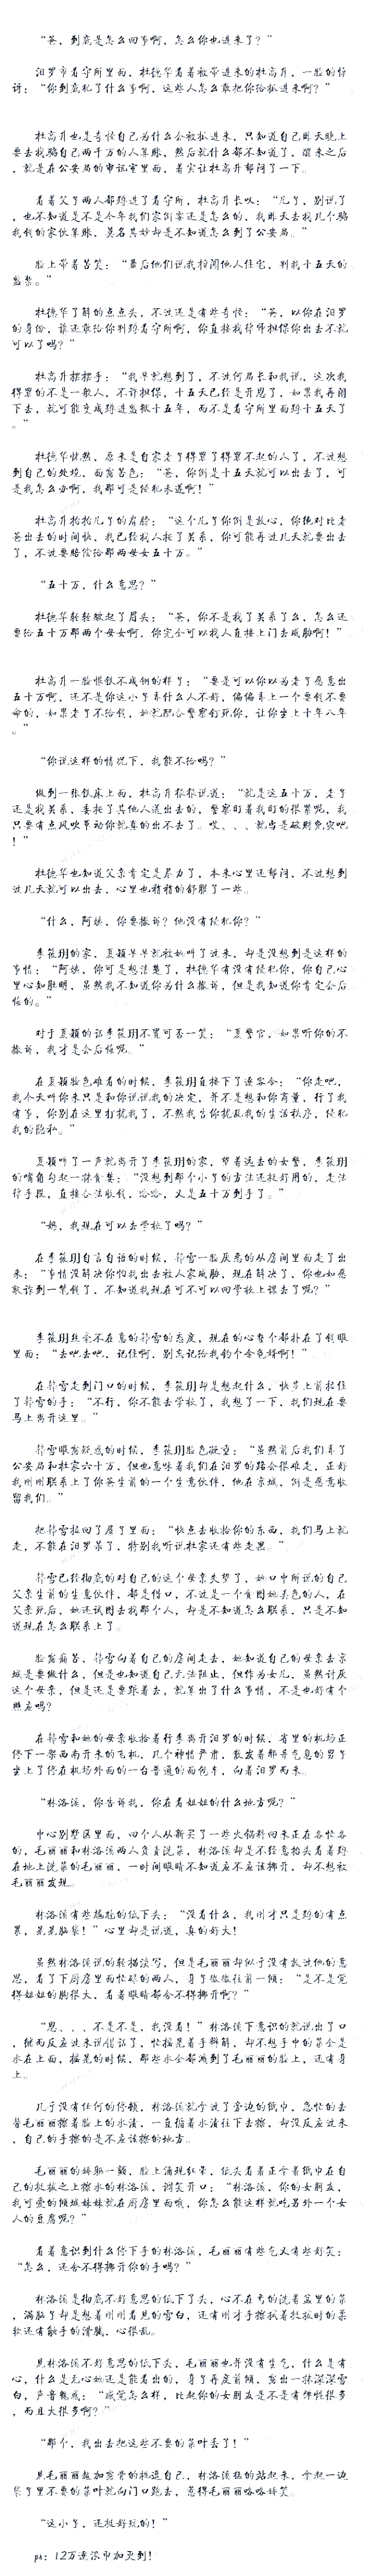 “爸、到底是怎么回事啊，怎么你也进来了？”
汨罗市看守所里面，杜德华看着被带进来的杜高升，一脸的惊
讶：“你到底犯了什么事啊，这些人怎么敢把你给抓进来啊？”
杜高升也是奇怪自己为什么会被抓进来，只知道自己昨天晚上
要去找骗自己两千万的人算账，然后就什么都不知道了，醒来之后
，就是在公安局的审讯室里面，着实让杜高升郁闷了一下。
看着父子两人都蹲进了看守所，杜高升长叹：“儿子，别说了
，也不知道是不是今年我们家倒霉还是怎么的，我昨天去找几个骗
我钱的家伙算账，莫名其妙却是不知道怎么到了公安局。”
脸上带着苦笑：“最后他们说我擅闯他人住宅，判我十五天的
监禁。”
杜德华了解的点点头，不过还是有些奇怪：“爸，以你在汨罗
的身份，谁还敢给你判蹲看守所啊，你直接找律师担保你出去不就
可以了吗？”
杜高升摆摆手：“我早就想到了，不过何局长和我说，这次我
得罪的不是一般人，不许担保，十五天已经是开恩了，如果我再闹
下去，就可能变成蹲进监狱十五年，而不是看守所里面蹲十五天了
。”
杜德华恍然，原来是自家老子得罪了得罪不起的人了，不过想
到自己的处境，面露苦色：“爸，你倒是十五天就可以出去了，可
是我怎么办啊，我那可是侵犯未遂啊！”
杜高升拍拍儿子的肩膀：“这个儿子你倒是放心，你绝对比老
爸出去的时间快，我已经找人托了关系，你可能再过几天就要出去
了，不过要赔偿给那两母女五十万。”
“五十万，什么意思？”
杜德华轻轻皱起了眉头：“爸，你不是找了关系了么，怎么还
要给五十万那两个母女啊，你完全可以找人直接上门去威胁啊！”
杜高升一脸恨铁不成钢的样子：“要是可以你以为老子愿意出
五十万啊，还不是你这小子弄什么人不好，偏偏弄上一个要钱不要
命的，如果老子不给钱，她就配合警察钉死你，让你坐上十年八年
。”
“你说这样的情况下，我能不给吗？”
做到一张铁床上面，杜高升狠狠说道：“就是这五十万，老子
还是找关系，委托了其他人送出去的，警察盯着我盯的很紧呢，我
只要有点风吹草动你就真的出不去了。哎、、、就当是破财免灾吧
！”
杜德华也知道父亲肯定是尽力了，本来心里还郁闷，不过想到
过几天就可以出去，心里也稍稍的舒服了一些。
“什么，阿姨，你要撤诉？他没有侵犯你？”
李筱玥的家，夏颖早早就被她叫了过来，却是没想到是这样的
事情：“阿姨，你可是想清楚了，杜德华有没有侵犯你，你自己心
里心知肚明，虽然我不知道你为什么撤诉，但是我知道你肯定会后
悔的。”
对于夏颖的话李筱玥不置可否一笑：“夏警官，如果听你的不
撤诉，我才是会后悔呢。”
在夏颖脸色难看的时候，李筱玥直接下了逐客令：“你走吧，
我今天叫你来只是和你说说我的决定，并不是想和你商量，行了我
有事，你别在这里打扰我了，不然我告你扰乱我的生活秩序，侵犯
我的隐私。”
夏颖哼了一声就离开了李筱玥的家，望着远去的女警，李筱玥
的嘴角勾起一抹贪婪：“没想到那个小子的方法还挺好用的，走法
律手段，直接合法收钱，哈哈，又是五十万到手了。”
“妈，我现在可以去学校了吗？”
在李筱玥自言自语的时候，韩雪一脸厌恶的从房间里面走了出
来：“事情没解决你怕我出去被人家威胁，现在解决了，你也如愿
敲诈到一笔钱了，不知道我现在可不可以回学校上课去了呢？”
李筱玥丝毫不在意的韩雪的态度，现在的心整个都扑在了钱眼
里面：“去吧去吧，记住啊，别忘记给我钓个金龟婿啊！”
在韩雪走到门口的时候，李筱玥却是想起什么，快步上前拉住
了韩雪的手：“不行，你不能去学校了，我想了一下，我们现在要
马上离开这里。”
韩雪眼露疑惑的时候，李筱玥脸色凝重：“虽然前后我们弄了
公安局和杜家六十万，但也意味着我们在汨罗的路会很难走，正好
我刚刚联系上了你爸生前的一个生意伙伴，他在京城，倒是愿意收
留我们。”
把韩雪拉回了屋子里面：“快点去收拾你的东西，我们马上就
走，不能在汨罗呆了，特别我听说杜家还有些走黑。”
韩雪已经彻底的对自己的这个母亲失望了，她口中所说的自己
父亲生前的生意伙伴，都是借口，不过是一个贪图她美色的人，在
父亲死后，她还试图去找那个人，却是不知道怎么联系，只是不知
道现在怎么联系上了。
脸露痛苦，韩雪向着自己的房间走去，她知道自己的母亲去京
城是要做什么，但是也知道自己无法阻止，但作为女儿，虽然讨厌
这个母亲，但是还是要跟着去，就算出了什么事情，不是也好有个
照应吗？
在韩雪和她的母亲收拾着行李离开汨罗的时候，省里的机场正
停下一架西南开来的飞机，几个神情严肃，散发着彪悍气息的男子
坐上了停在机场外面的一台普通的面包车，向着汨罗而来。
“林洛溪，你告诉我，你在看姐姐的什么地方呢？”
中心别墅区里面，四个人从新买了一些火锅料回来正在各忙各
的，毛丽丽和林洛溪两人负责洗菜，林洛溪却是不经意抬头看着蹲
在地上洗菜的毛丽丽，一时间眼睛不知道应不应该挪开，却不想被
毛丽丽发现。
林洛溪有些尴尬的低下头：“没看什么，我刚才只是蹲的有点
累，晃晃脑袋！”心里却是说道，真的好大！
虽然林洛溪说的轻描淡写，但是毛丽丽却似乎没有放过他的意
思，看了下厨房里面忙碌的两人，身子微微往前一倾：“是不是觉
得姐姐的胸很大，看着眼睛都舍不得挪开啊？”
“恩、、、不是不是，我没看！”林洛溪下意识的就说出了口
，继而反应过来说错话了，忙摇晃着手辩解，却不想手中的菜全是
水在上面，摇晃的时候，那些水全部溅到了毛丽丽的脸上，还有身
上。
几乎没有任何的停顿，林洛溪就拿过了旁边的纸巾，急忙的去
替毛丽丽擦着脸上的水渍，一直循着水渍往下去擦，却没反应过来
，自己的手擦的是不应该擦的地方。
毛丽丽的娇躯一颤，脸上涌现红晕，低头看着正拿着纸巾在自
己的挺拔之上擦水的林洛溪，调笑开口：“林洛溪，你的女朋友，
我可爱的倾城妹妹就在厨房里面哦，你怎么能这样就吃另外一个女
人的豆腐呢？”
看着意识到什么停下手的林洛溪，毛丽丽有些气又有些好笑：
“怎么，还舍不得挪开你的手吗？”
林洛溪是彻底不好意思的低下了头，心不在焉的洗着盆里的菜
，满脑子却是想着刚刚看见的雪白，还有刚才手擦拭着挺拔时的柔
软还有触手的滑腻，心很乱。
见林洛溪不好意思的低下头，毛丽丽也并没有生气，什么是有
心，什么是无心她还是能看出的，身子再度前倾，露出一抹深深雪
白，声音魅惑：“感觉怎么样，比起你的女朋友是不是有弹性很多
，而且大很多啊？”
“那个，我出去把这些不要的菜叶丢了！”
见毛丽丽越加露骨的挑逗自己，林洛溪猛的站起来，拿起一边
袋子里不要的菜叶就向门口跑去，惹得毛丽丽咯咯娇笑。
“这小子，还挺好玩的！”
ps：12万逐浪币加更到！